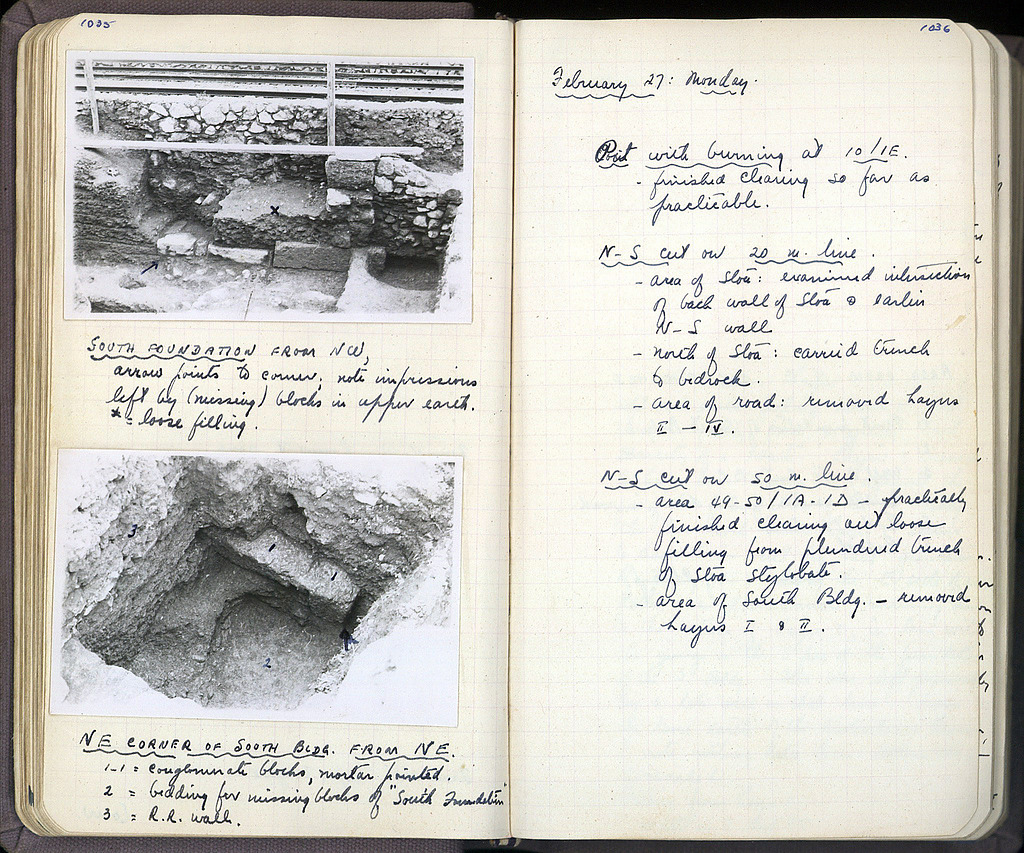 1035
SOUTH FOUNDATION FROM NW,
arrow points to corner; note impressions
left by (missing) blocks in upper earth.
x = loose filling.
3
1
1
2
NE CORNER OF SOUTH BLDG. FROM NE.
1-1 = conglomerate blocks, mortar pointed.
2 = bedding for missing blocks of "South Foundation"
3 = R.R. wall.
1036
February 27: Monday.
Pit with burning at 10/1E.
- finished clearing so far as
practicable.
N-S cut on 20 m. line.
- area of Stoa: examined intersection
of back wall of Stoa & earlier
N-S wall
- north of Stoa: carried trench
to bedrock.
- area of road: removed Layers
II - IV.
N-S cut on 50 m. line.
- area 49-50/1A-1D - practically
finished clearing out loose
filling from plundered trench
of Stoa Stylobate.
- area of South Bldg. - removed
Layers I & II.